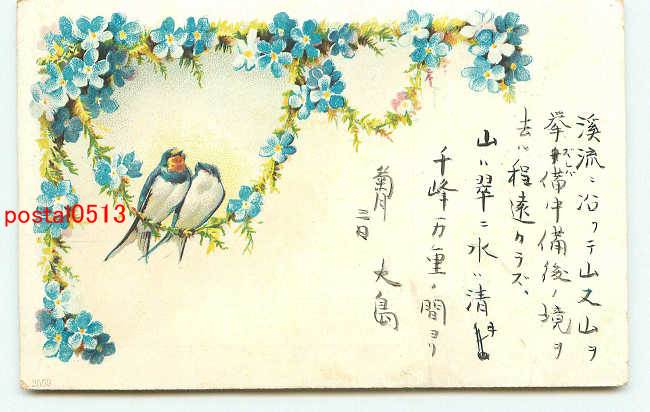 溪流ニ沿フテ山又山ヲ
挙ズレバ備中備後ノ境ヲ
去ル程遠クラズ、
山ハ翠ニ水ハ清キ
千峰万重ノ間ヨリ
菊月
三日
大島
postal0513
2059